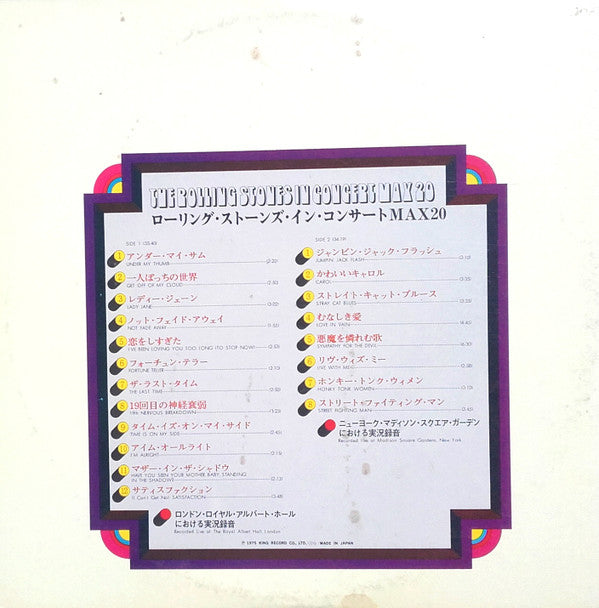 THE ROLLING STONES IN CONCERT MAX 20
ローリング・ストーンズ・イン・コンサートMAX20
SIDE 1
1 アンダー・マイ・サム
UNDER MY THUMB
2 一人ぼっちの世界
GET OFF OF MY CLOUD
3 レディー・ジェーン
LADY JANE
4 ノット・フェイド・アウェイ
NOT FADE AWAY
5 恋をしすぎた
I'VE BEEN LOVING YOU TOO LONG (TO STOP NOW)
6 フォーチュン・テラー
FORTUNE TELLER
7 ザ・ラスト・タイム
THE LAST TIME
8 19回目の神経衰弱
19th NERVOUS BREAKDOWN
9 タイム・イズ・オン・マイ・サイド
TIME IS ON MY SIDE
10 アイム・オールライト
I'M ALRIGHT
11 マザー・イン・ザ・シャドウ
HAVE YOU SEEN YOUR MOTHER BABY, STANDING
IN THE SHADOW
12 サティスファクション
(I Can't Get No) SATISFACTION
ロンドン・ロイヤル・アルバート・ホール
における実況録音
Recorded Live at The Royal Albert Hall London
SIDE 2
1 ジャンピン・ジャック・フラッシュ
JUMPIN' JACK FLASH
2 かわいいキャロル
CAROL
3 ストレイト・キャット・ブルース
STRAY CAT BLUES
4 むなしき愛
LOVE IN VAIN
5 悪魔を憐れむ歌
SYMPATHY FOR THE DEVIL
6 リヴ・ウィズ・ミー
LIVE WITH ME
7 ホンキー・トンク・ウィメン
HONKY TONK WOMEN
8 ストリート・ファイティング・マン
STREET FIGHTING MAN
ニューヨーク・マディソン・スクエア・ガーデン
における実況録音
Recorded live at Madison Square Gardens, New York
Ⓟ 1975 KING RECORD CO., LTD. MADE IN JAPAN